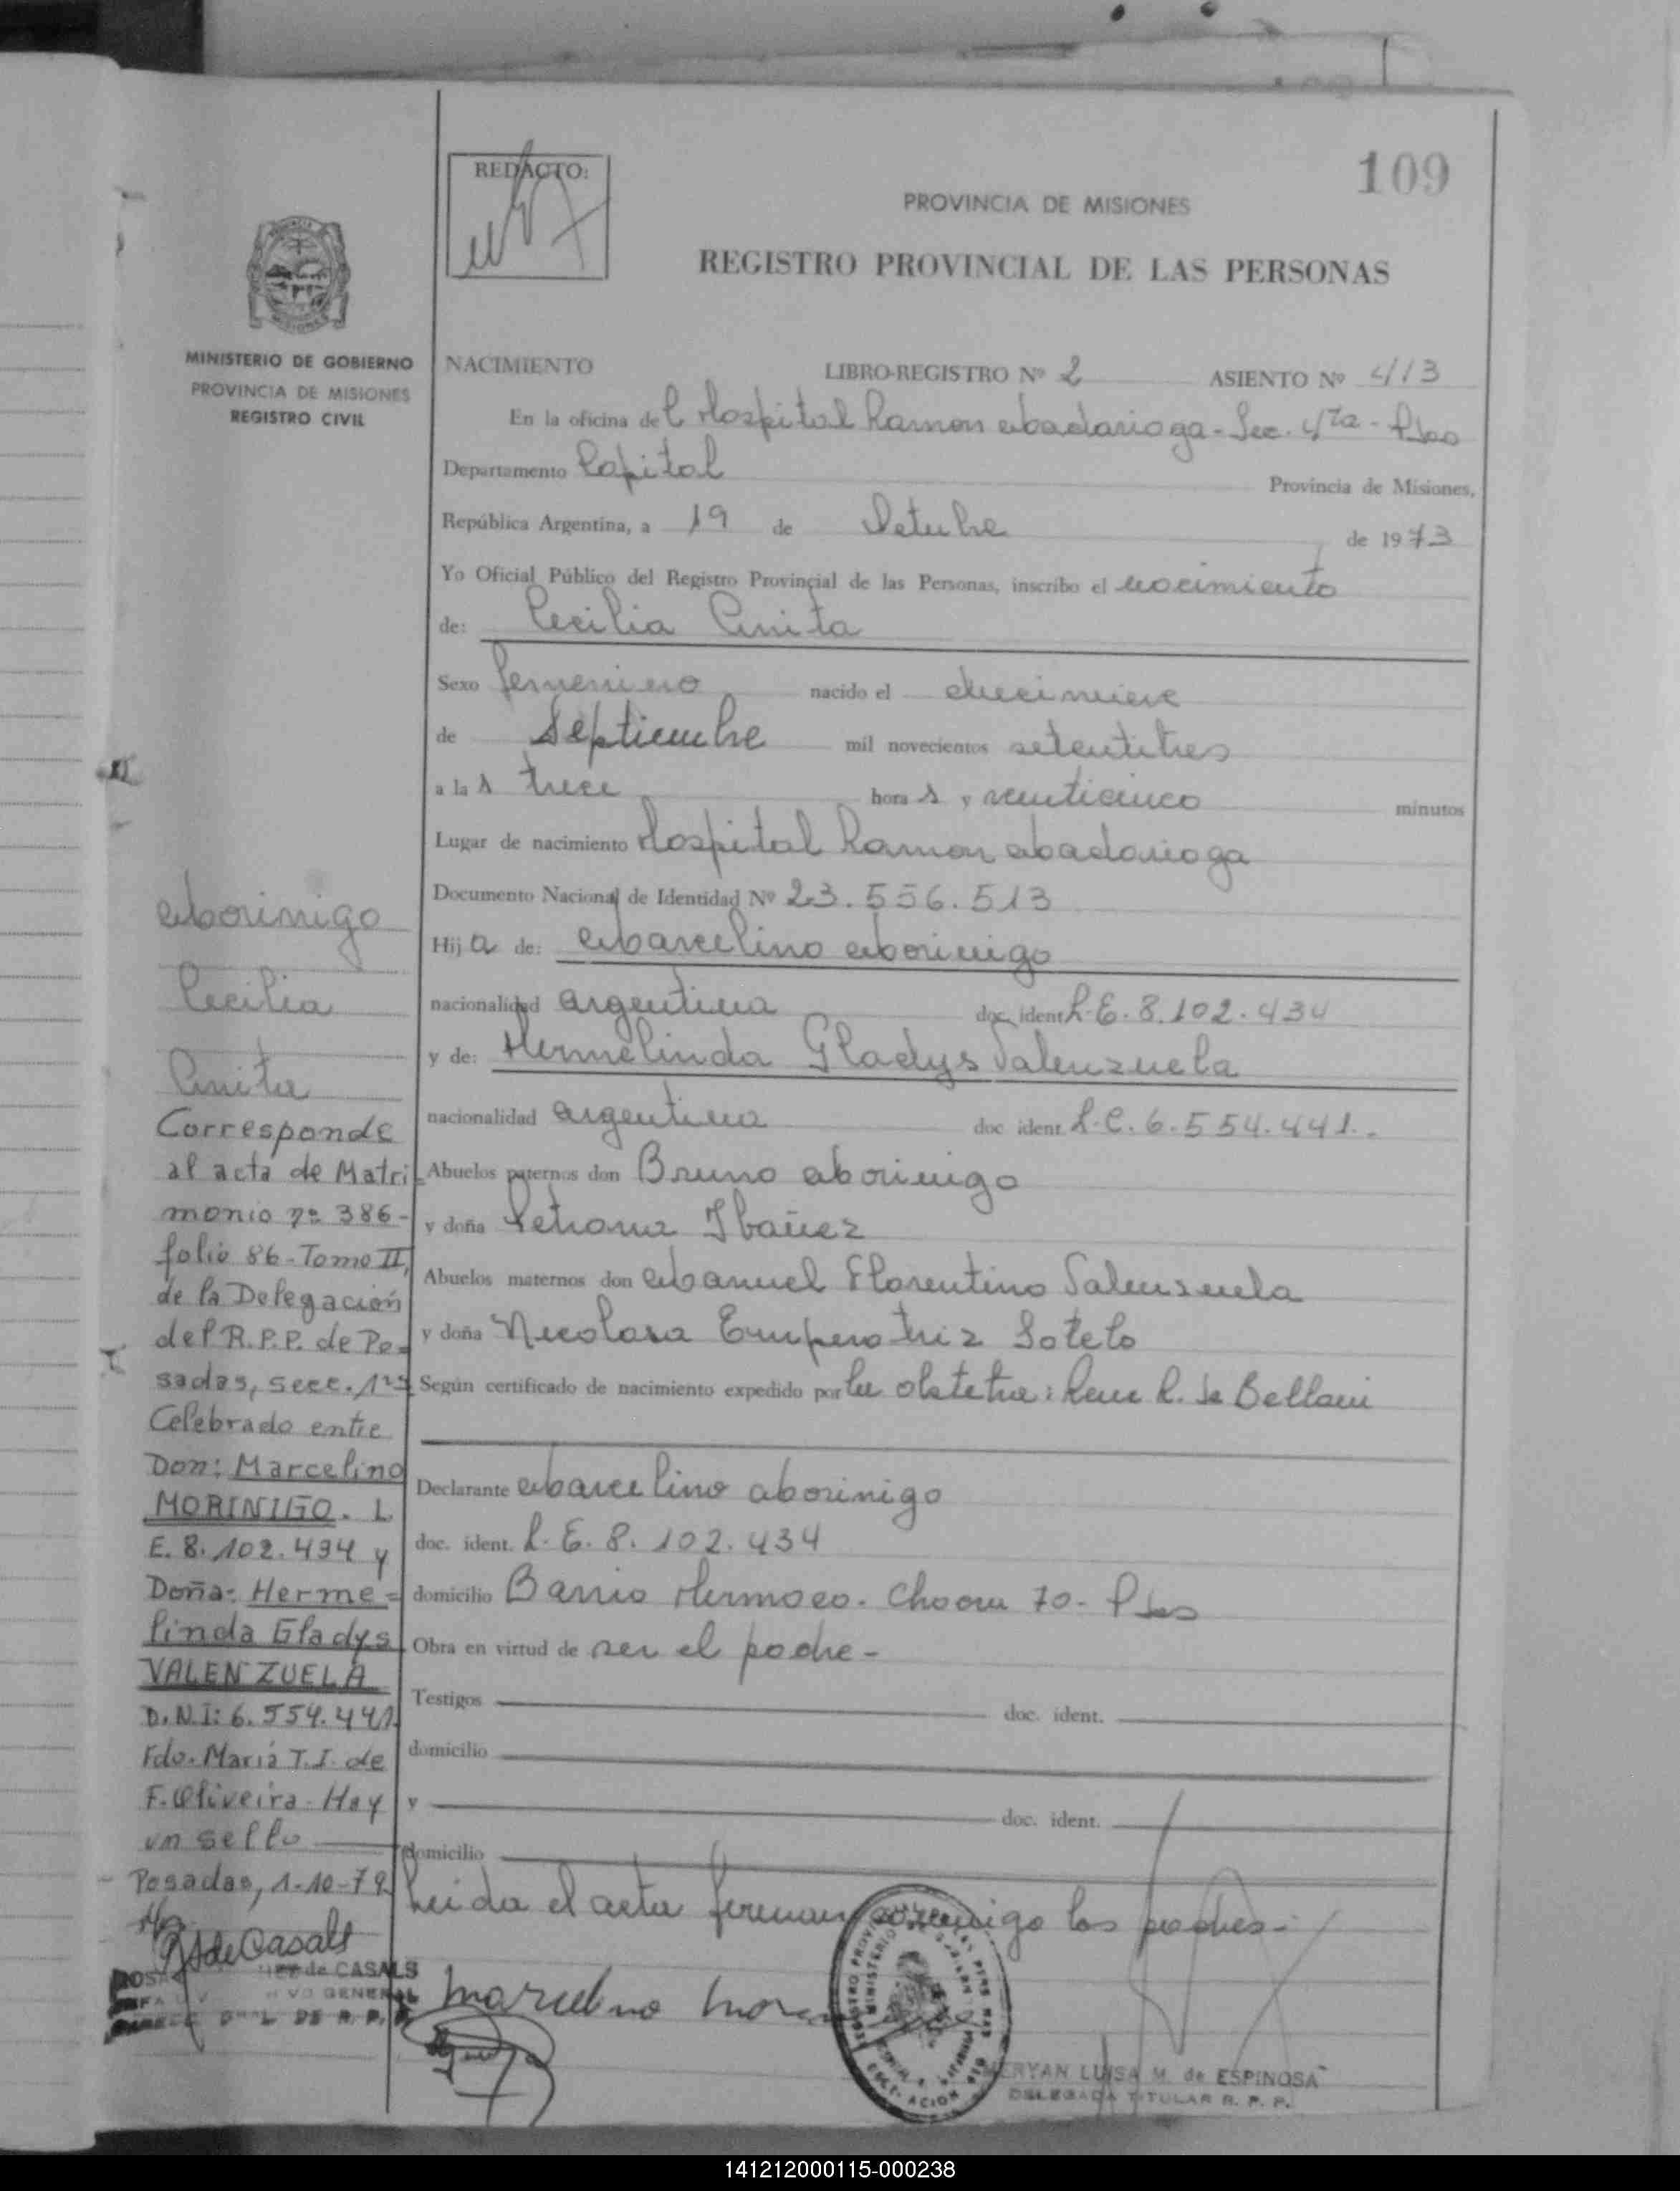 109
REDACTO:
PROVINCIA DE MISIONES
REGISTRO PROVINCIAL DE LAS PERSONAS
MINISTERIO DE GOBIERNO
PROVINCIA DE MISIONES
REGISTRO CIVIL
NACIMIENTO LIBRO-REGISTRO Nº 2 ASIENTO Nº 413
En la oficina del Hospital Ramon Madariaga - Sec. 4ta - Pdas
Departamento Capital Provincia de Misiones,
República Argentina, a 19 de Octubre de 1973
Yo Oficial Público del Registro Provincial de las Personas, inscribo el nacimiento
de: Cecilia Anita
Sexo femenino nacido el diecinueve
de Septiembre mil novecientos setentitres
a las trece horas y veinticinco minutos
Lugar de nacimiento Hospital Ramon Madariaga
Documento Nacional de Identidad Nº 23.556.513
Hija de: Marcelino Morinigo
nacionalidad argentina doc. ident L.E. 8.102.434
y de: Hermelinda Gladys Valenzuela
nacionalidad argentina doc. ident. L.C. 6.554.441.-
Abuelos paternos don Bruno Morinigo
y doña Petrona Ibañez
Abuelos maternos don Manuel Florentino Valenzuela
y doña Nicolasa Emperatriz Sotelo
Según certificado de nacimiento expedido por la obstetra: R. de Belloni
Declarante Marcelino Morinigo
doc. ident. L.E. 8.102.434
domicilio Barrio Hermoso. Chacra 70 - Pdas
Obra en virtud de ser el padre -
Testigos doc. ident.
domicilio
y doc. ident.
domicilio
Leida el acta firman conmigo los padres -
Marcelino
Morinigo
Cecilia
Anita
Corresponde
al acta de Matri-
monio nº 386-
folio 86-Tomo II,
de la Delegación
del R.P.P. de Po=
sadas, secc. 1ra
Celebrado entre
Don: Marcelino
MORINIGO. L.
E. 8.102.434 y
Doña: Herme=
linda Gladys
VALENZUELA
D.N.I: 6.554.441.
Fdo. María T.I. de
F. Oliveira - Hay
un sello
Posadas, 1-10-79
de Casals
de CASALS
GENERAL
DE R. P. P.
MERYAN LUISA M. de ESPINOSA
DELEGADA TITULAR R. P. P.
141212000115-000238